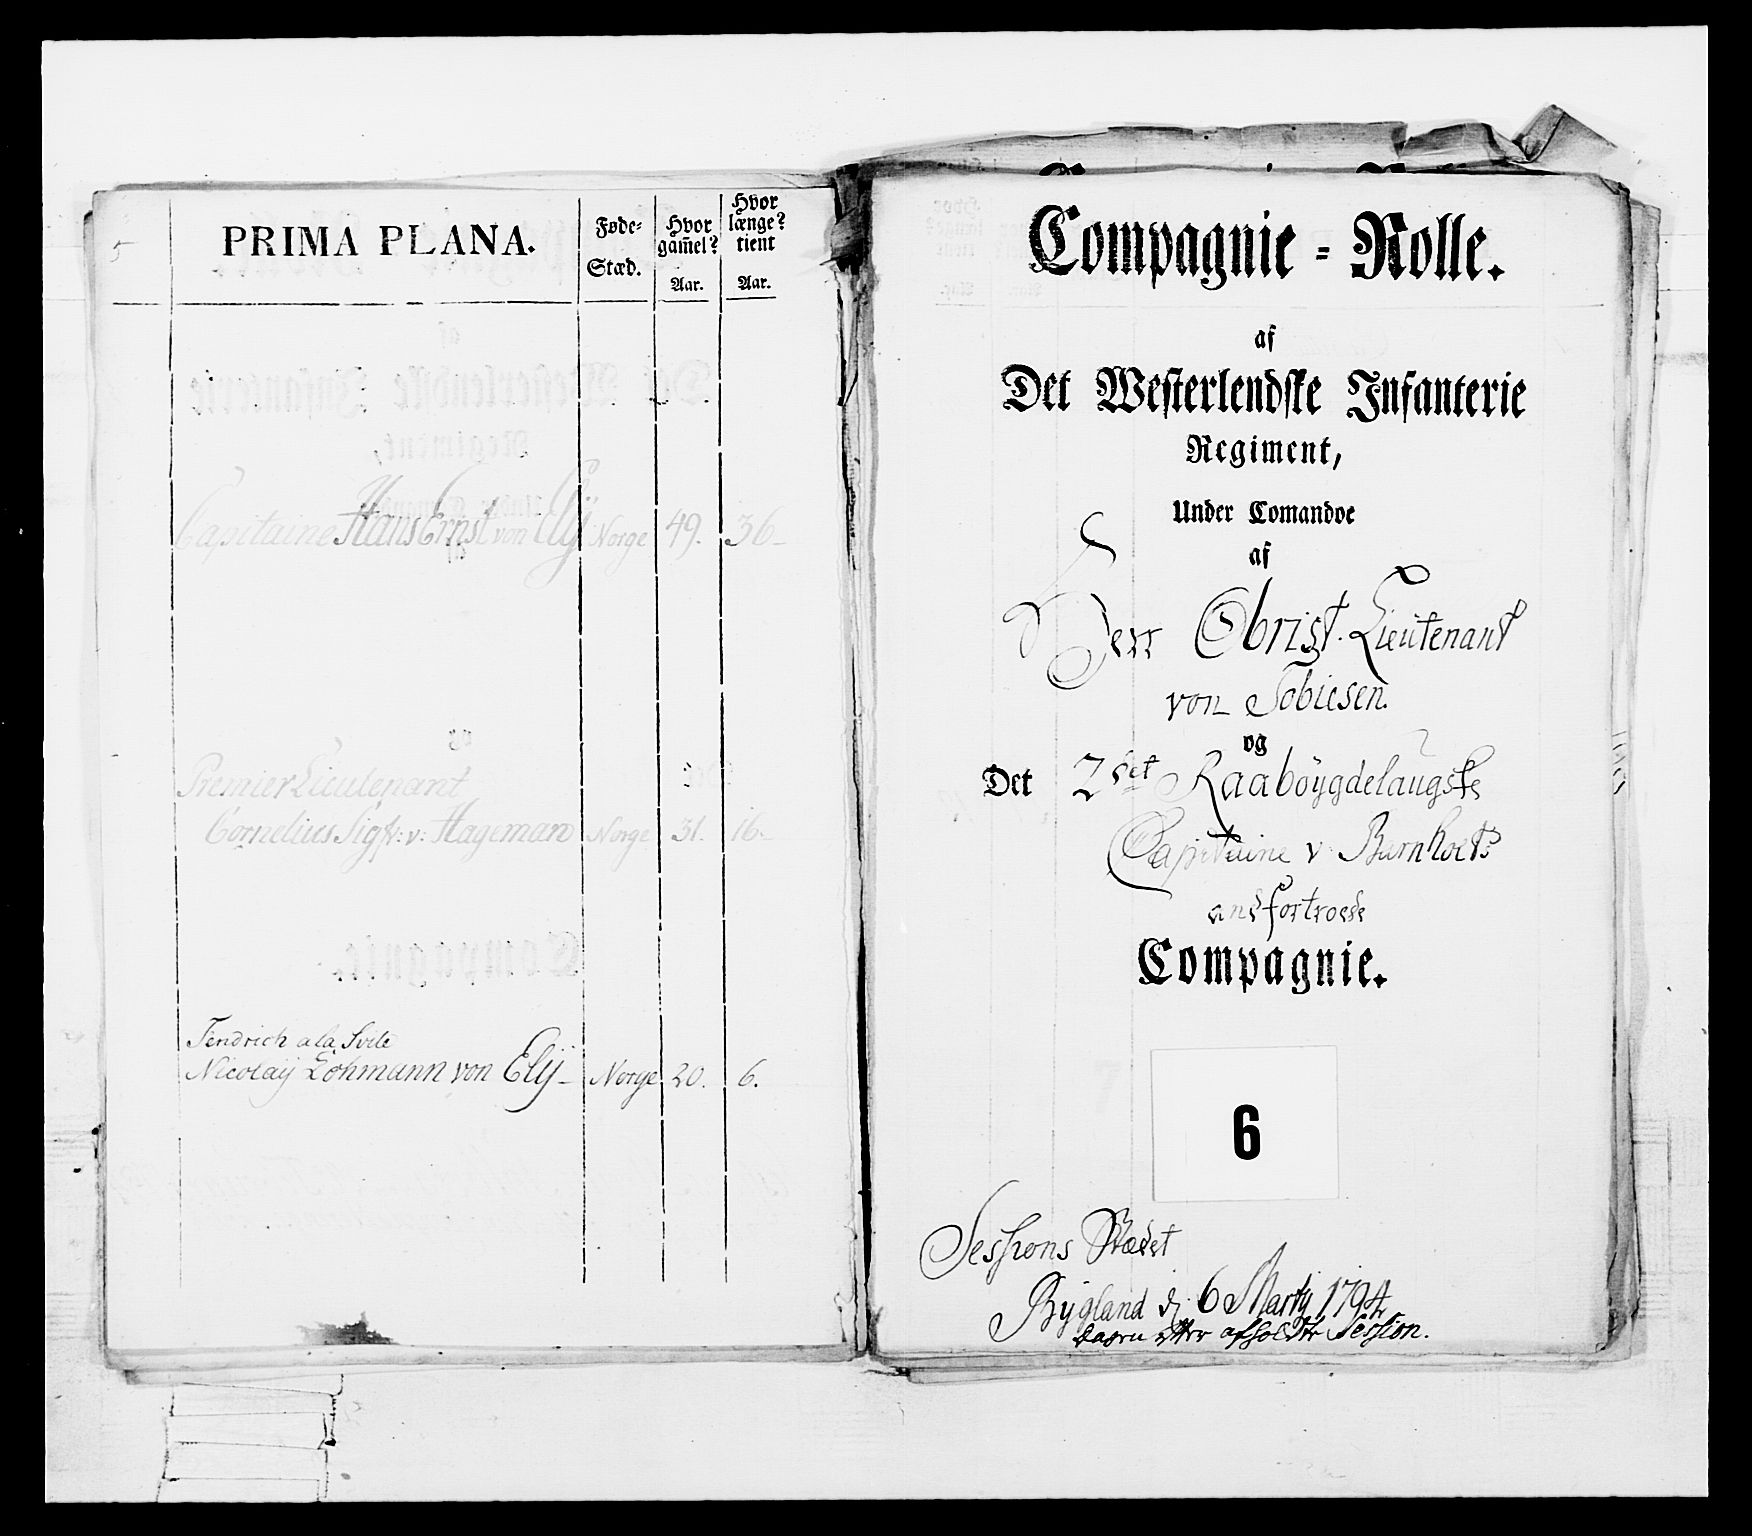 5
PRIMA PLANA.
Føde-
Stæd.
Hvor
gam̄el?
Aar.
Hvor
længe?
tient
Aar.
Capitaine Hans Ernst von Elÿ Norge 49. 36-
Premier Lieutenant
Cornelius Sigfr: v: Hageman Norge 31. 16-
Fendrich a la Svite
Nicolaÿ Lohmann von Elÿ- Norge 20. 6.
Compagnie-Rolle.
af
Det Westerlendske Infanterie
Regiment,
Under Comandoe
af
Herr Obrist-Lieutenant
von Tobiesen.
og
Det 2det Raabÿgdelaugske
Capitaine v Barnholts
anfortroede
Compagnie.
6
Sessions Stædet
Bygland d: 6 Martij 1794
Dagen etter afholdte Session.